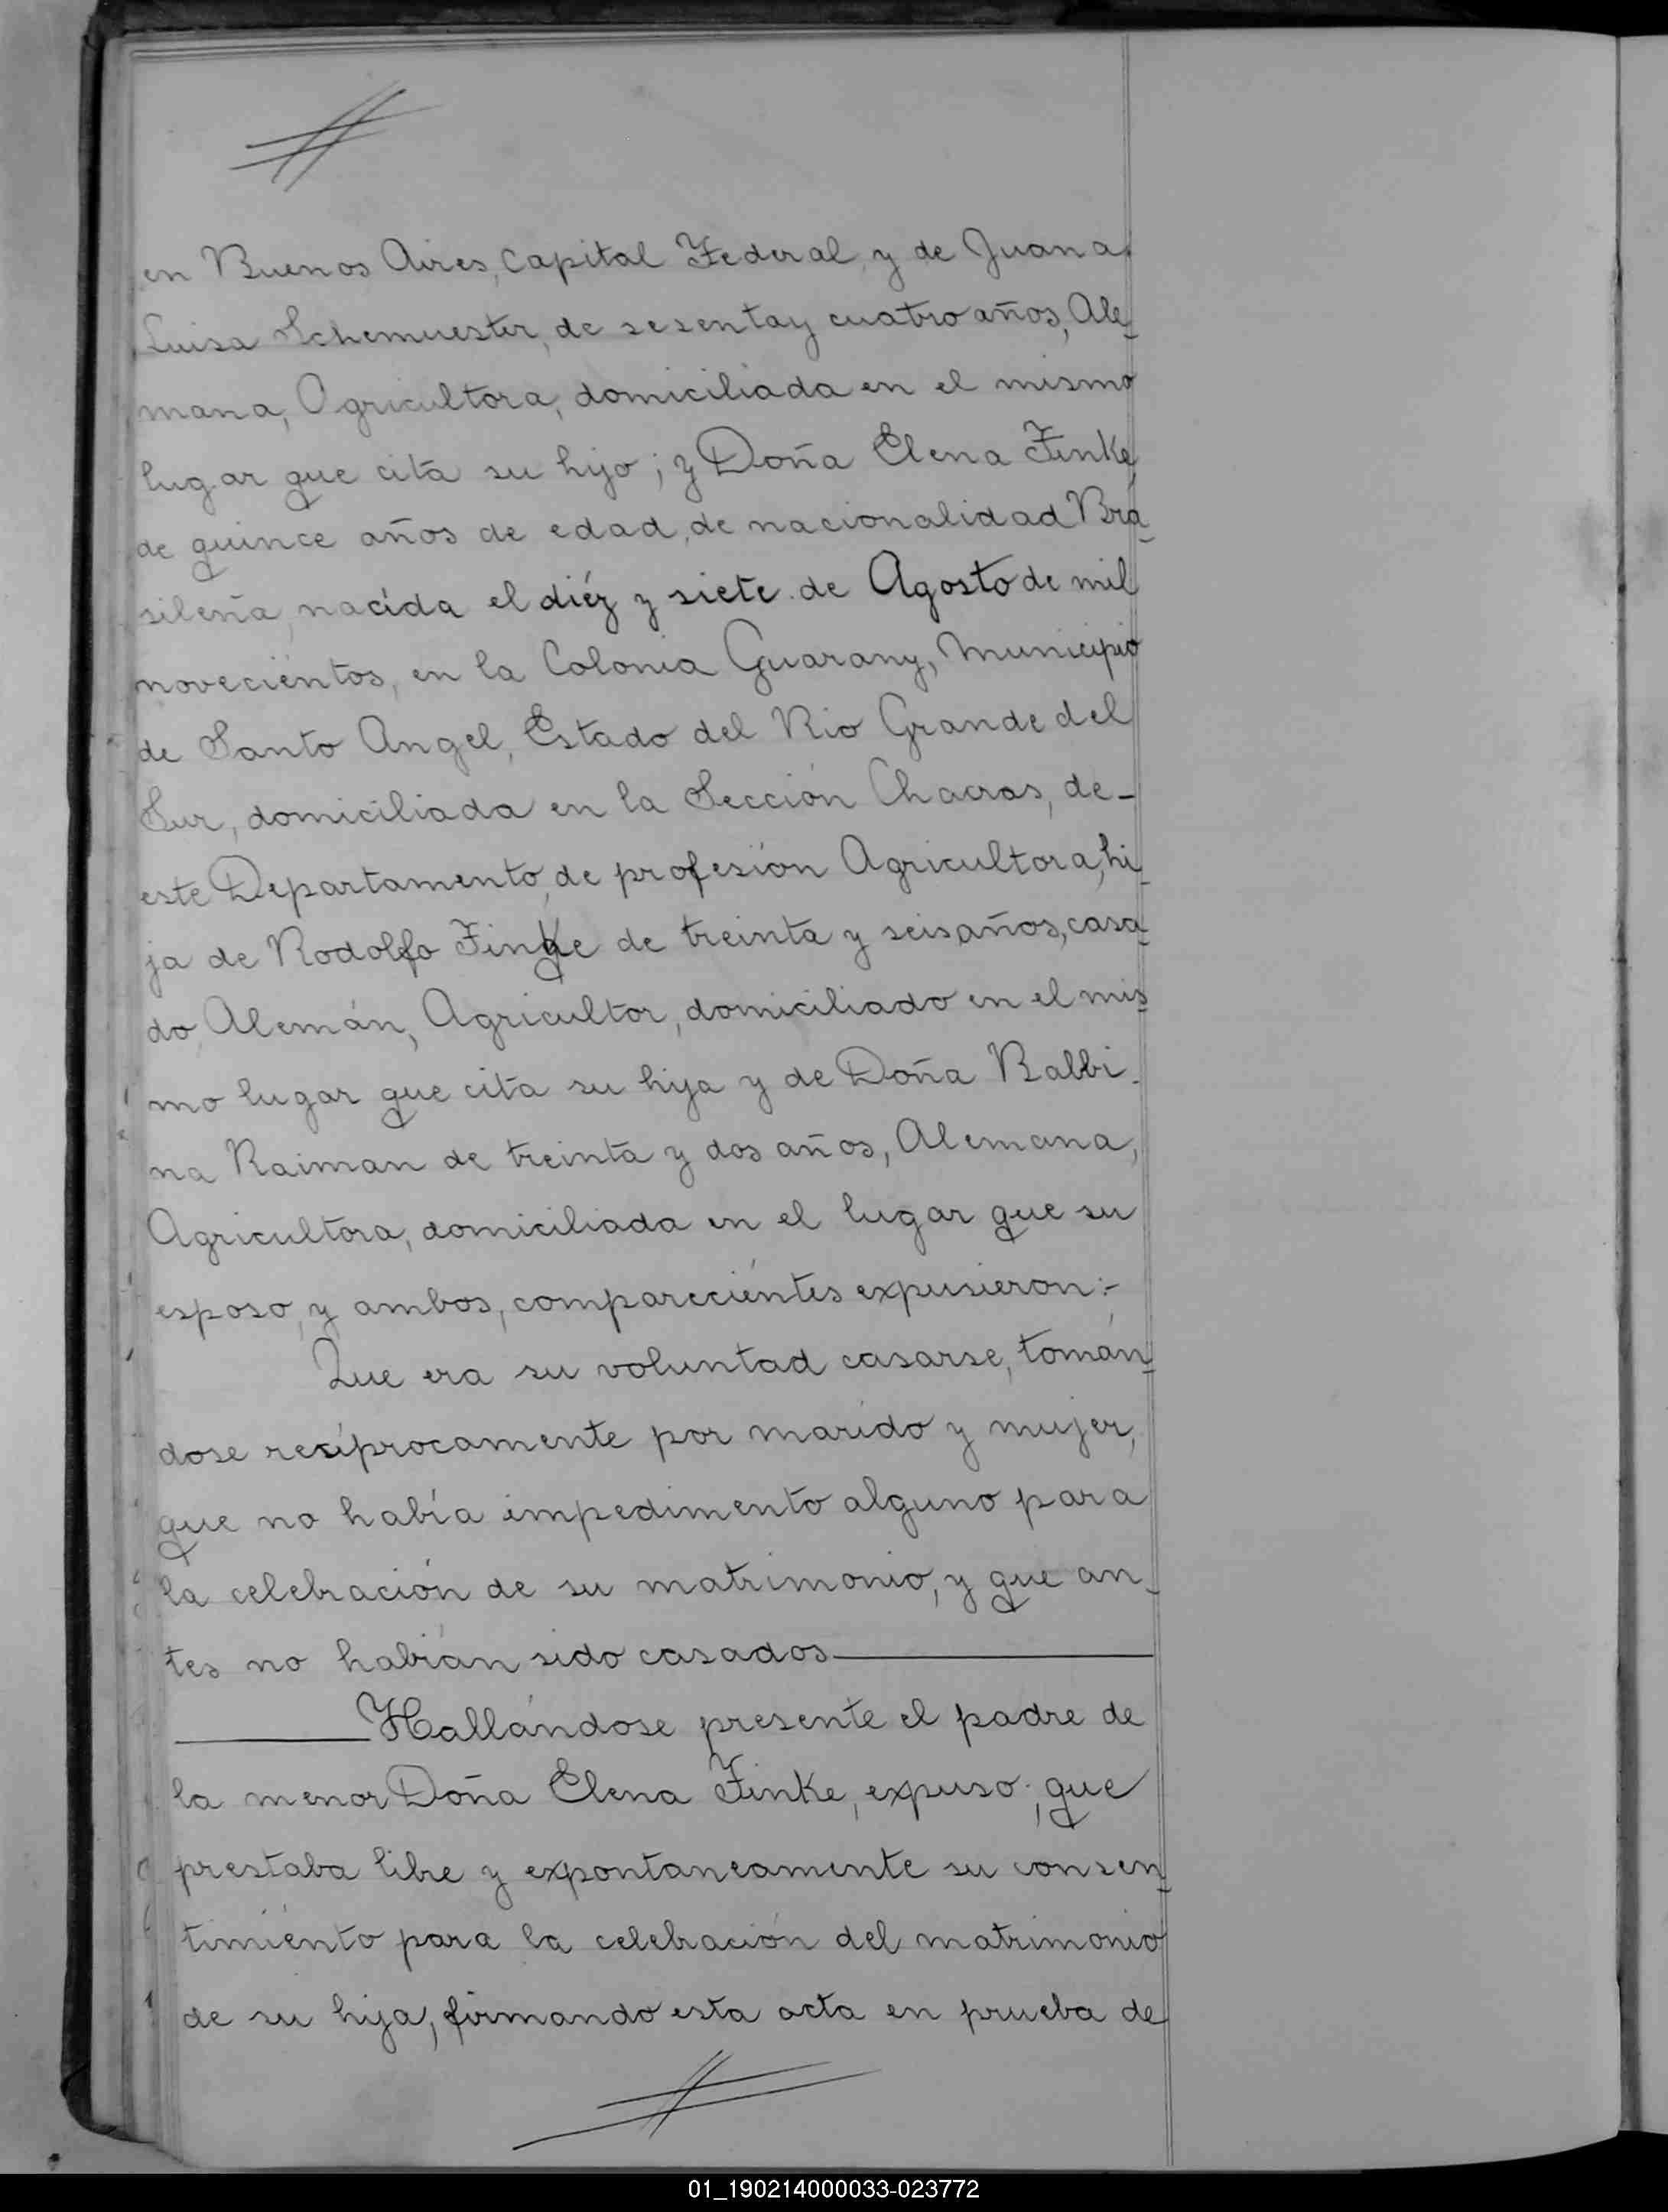 en Buenos Aires, Capital Federal, y de Juana
Luisa Schemuester, de sesenta y cuatro años, Ale-
mana, Agricultora, domiciliada en el mismo
lugar que cita su hijo; y Doña Elena Finke,
de quince años de edad, de nacionalidad Bra-
sileña, nacida el diéz y siete de Agosto de mil
novecientos, en la Colonia Guarany, Municipio
de Santo Angel, Estado del Rio Grande del
Sur, domiciliada en la Sección Chacras, de-
este Departamento, de profesión Agricultora, hi-
ja de Rodolfo Finke de treinta y seis años, casa-
do, Alemán, Agricultor, domiciliado en el mis-
mo lugar que cita su hija y de Doña Balbi-
na Raiman de treinta y dos años, Alemana,
Agricultora, domiciliada en el lugar que su
esposo, y ambos, comparecientes expusieron:-
Que era su voluntad casarse, tomán-
dose recíprocamente por marido y mujer,
que no había impedimento alguno para
la celebración de su matrimonio, y que an-
tes no habían sido casados
Hallándose presente el padre de
la menor Doña Elena Finke, expuso; que
prestaba libre y expontaneamente su consen-
timiento para la celebración del matrimonio
de su hija, firmando esta acta en prueba de
01_190214000033-023772